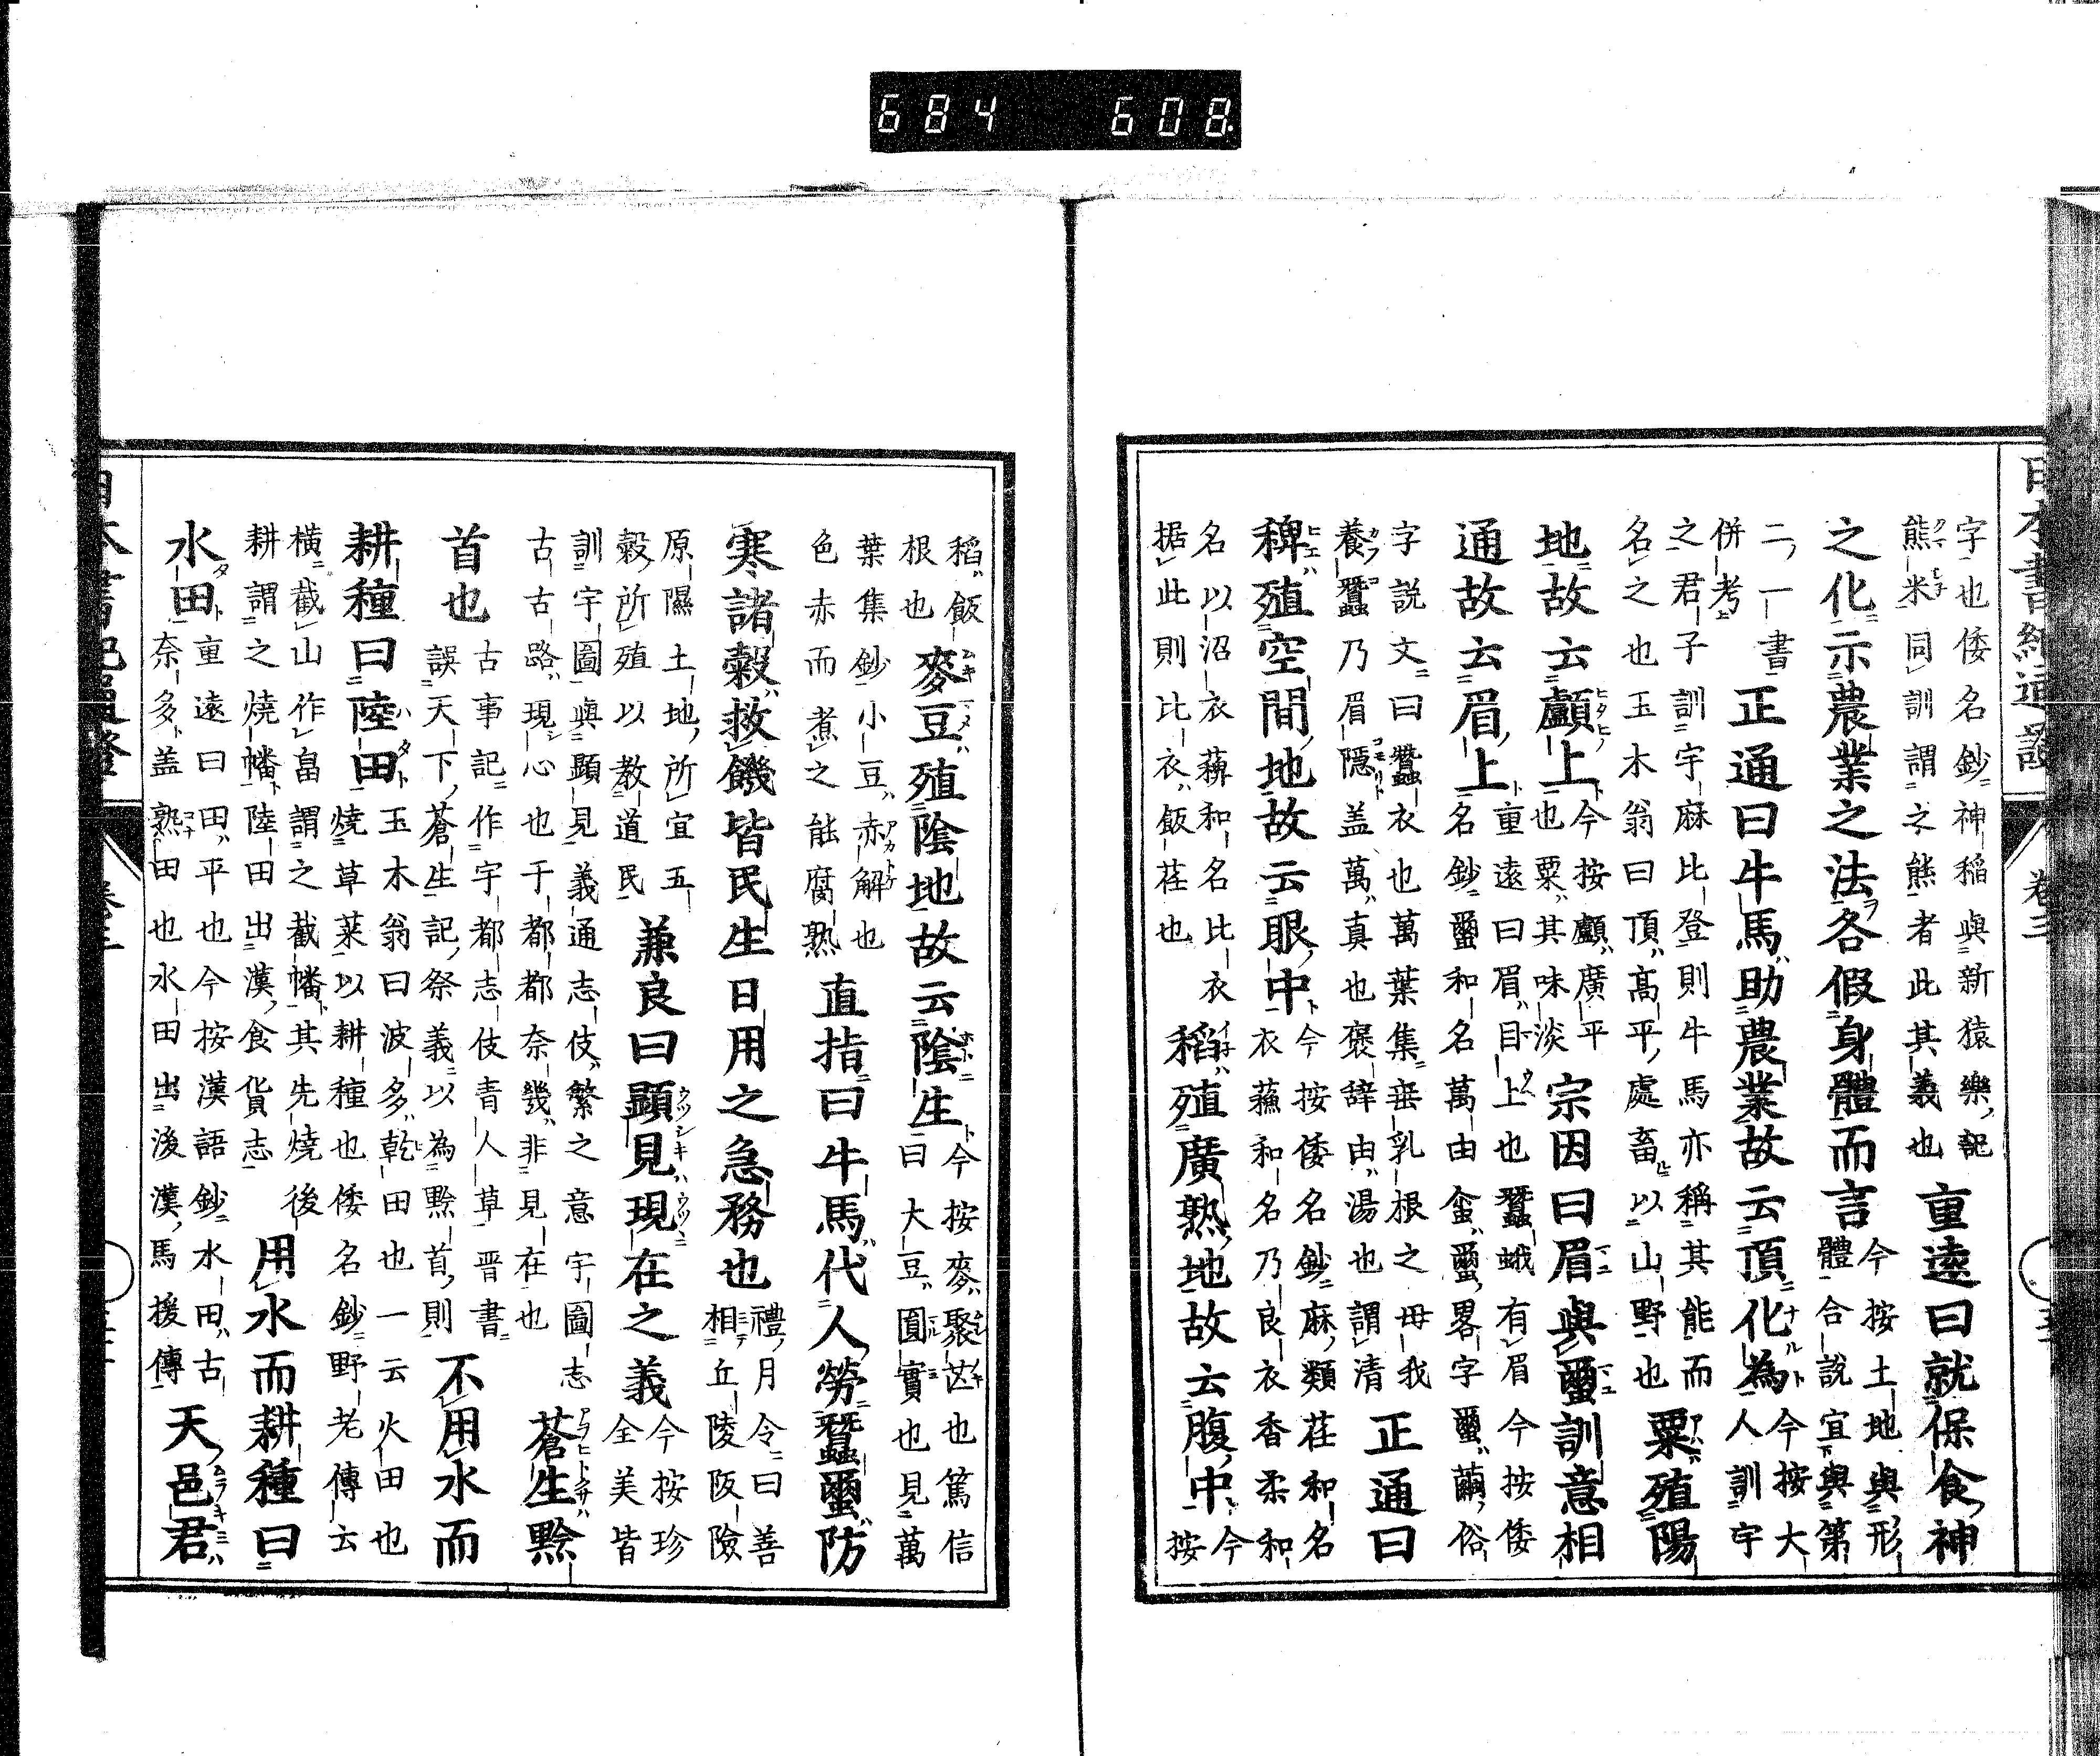 字也倭名鈔神稻與新猿樂記
熊米同訓謂之熊者此其義也
重遠曰就保食神
之化示農業之法各假身體而言
今按土地與形
體合說宜與第
二一書
併考
正通曰牛馬助農業故云頂化為
今按大
人訓宇
之君子訓宇麻比登則牛馬亦稱其能而
名之也玉木翁曰頂高平處畜以山野也
粟殖陽
地故云顱上
今按顱廣平
也粟其味淡
宗因曰眉與蠒訓意相
通故云眉上
重遠曰眉目上也蠶蛾有眉今按倭
名鈔蠒和名萬由蚕蠒畧字蠒繭俗
字說文曰蠶衣也萬葉集垂乳根之母我
養蠶乃眉隱盖萬真也褒辞由湯也謂清
正通曰
稗殖空間地故云眼中
今按倭名鈔麻類荏和名
衣蘓和名乃良衣香柔和
名以沼衣稗和名比衣
据此則比衣飯荏也
稻殖廣熟地故云腹中
今
按
稻飯
根也
麥豆殖陰地故云陰生
今按麥聚芒也篤信
曰大豆圓實也見萬
葉集鈔小豆赤解也
色赤而煮之能腐熟
直指曰牛馬代人勞蠶蠒防
寒諸穀救饑皆民生日用之急務也
禮月令曰善
相丘陵阪險
原隰土地所宜五
穀所殖以教道民
兼良曰顯見現在之義
今按珍
全美皆
訓宇圖與顯見義通志伎繁之意宇圖志
古古路現心也于都都奈幾非見在也
蒼生黔
首也
古事記作宇都志伎青人草晋書
誤天下蒼生記祭義以為黔首則
不用水而
耕種曰陸田
玉木翁曰波多乾田也一云火田也
燒草菜以耕種也倭名鈔野老傳云
橫截山作畠謂之截幡其先燒後
耕謂之燒幡陸田出漢食貨志
用水而耕種曰
水田
重遠曰田平也今按漢語鈔水田古
奈多盖熟田也水田出後漢馬援傳
天邑君
684 608